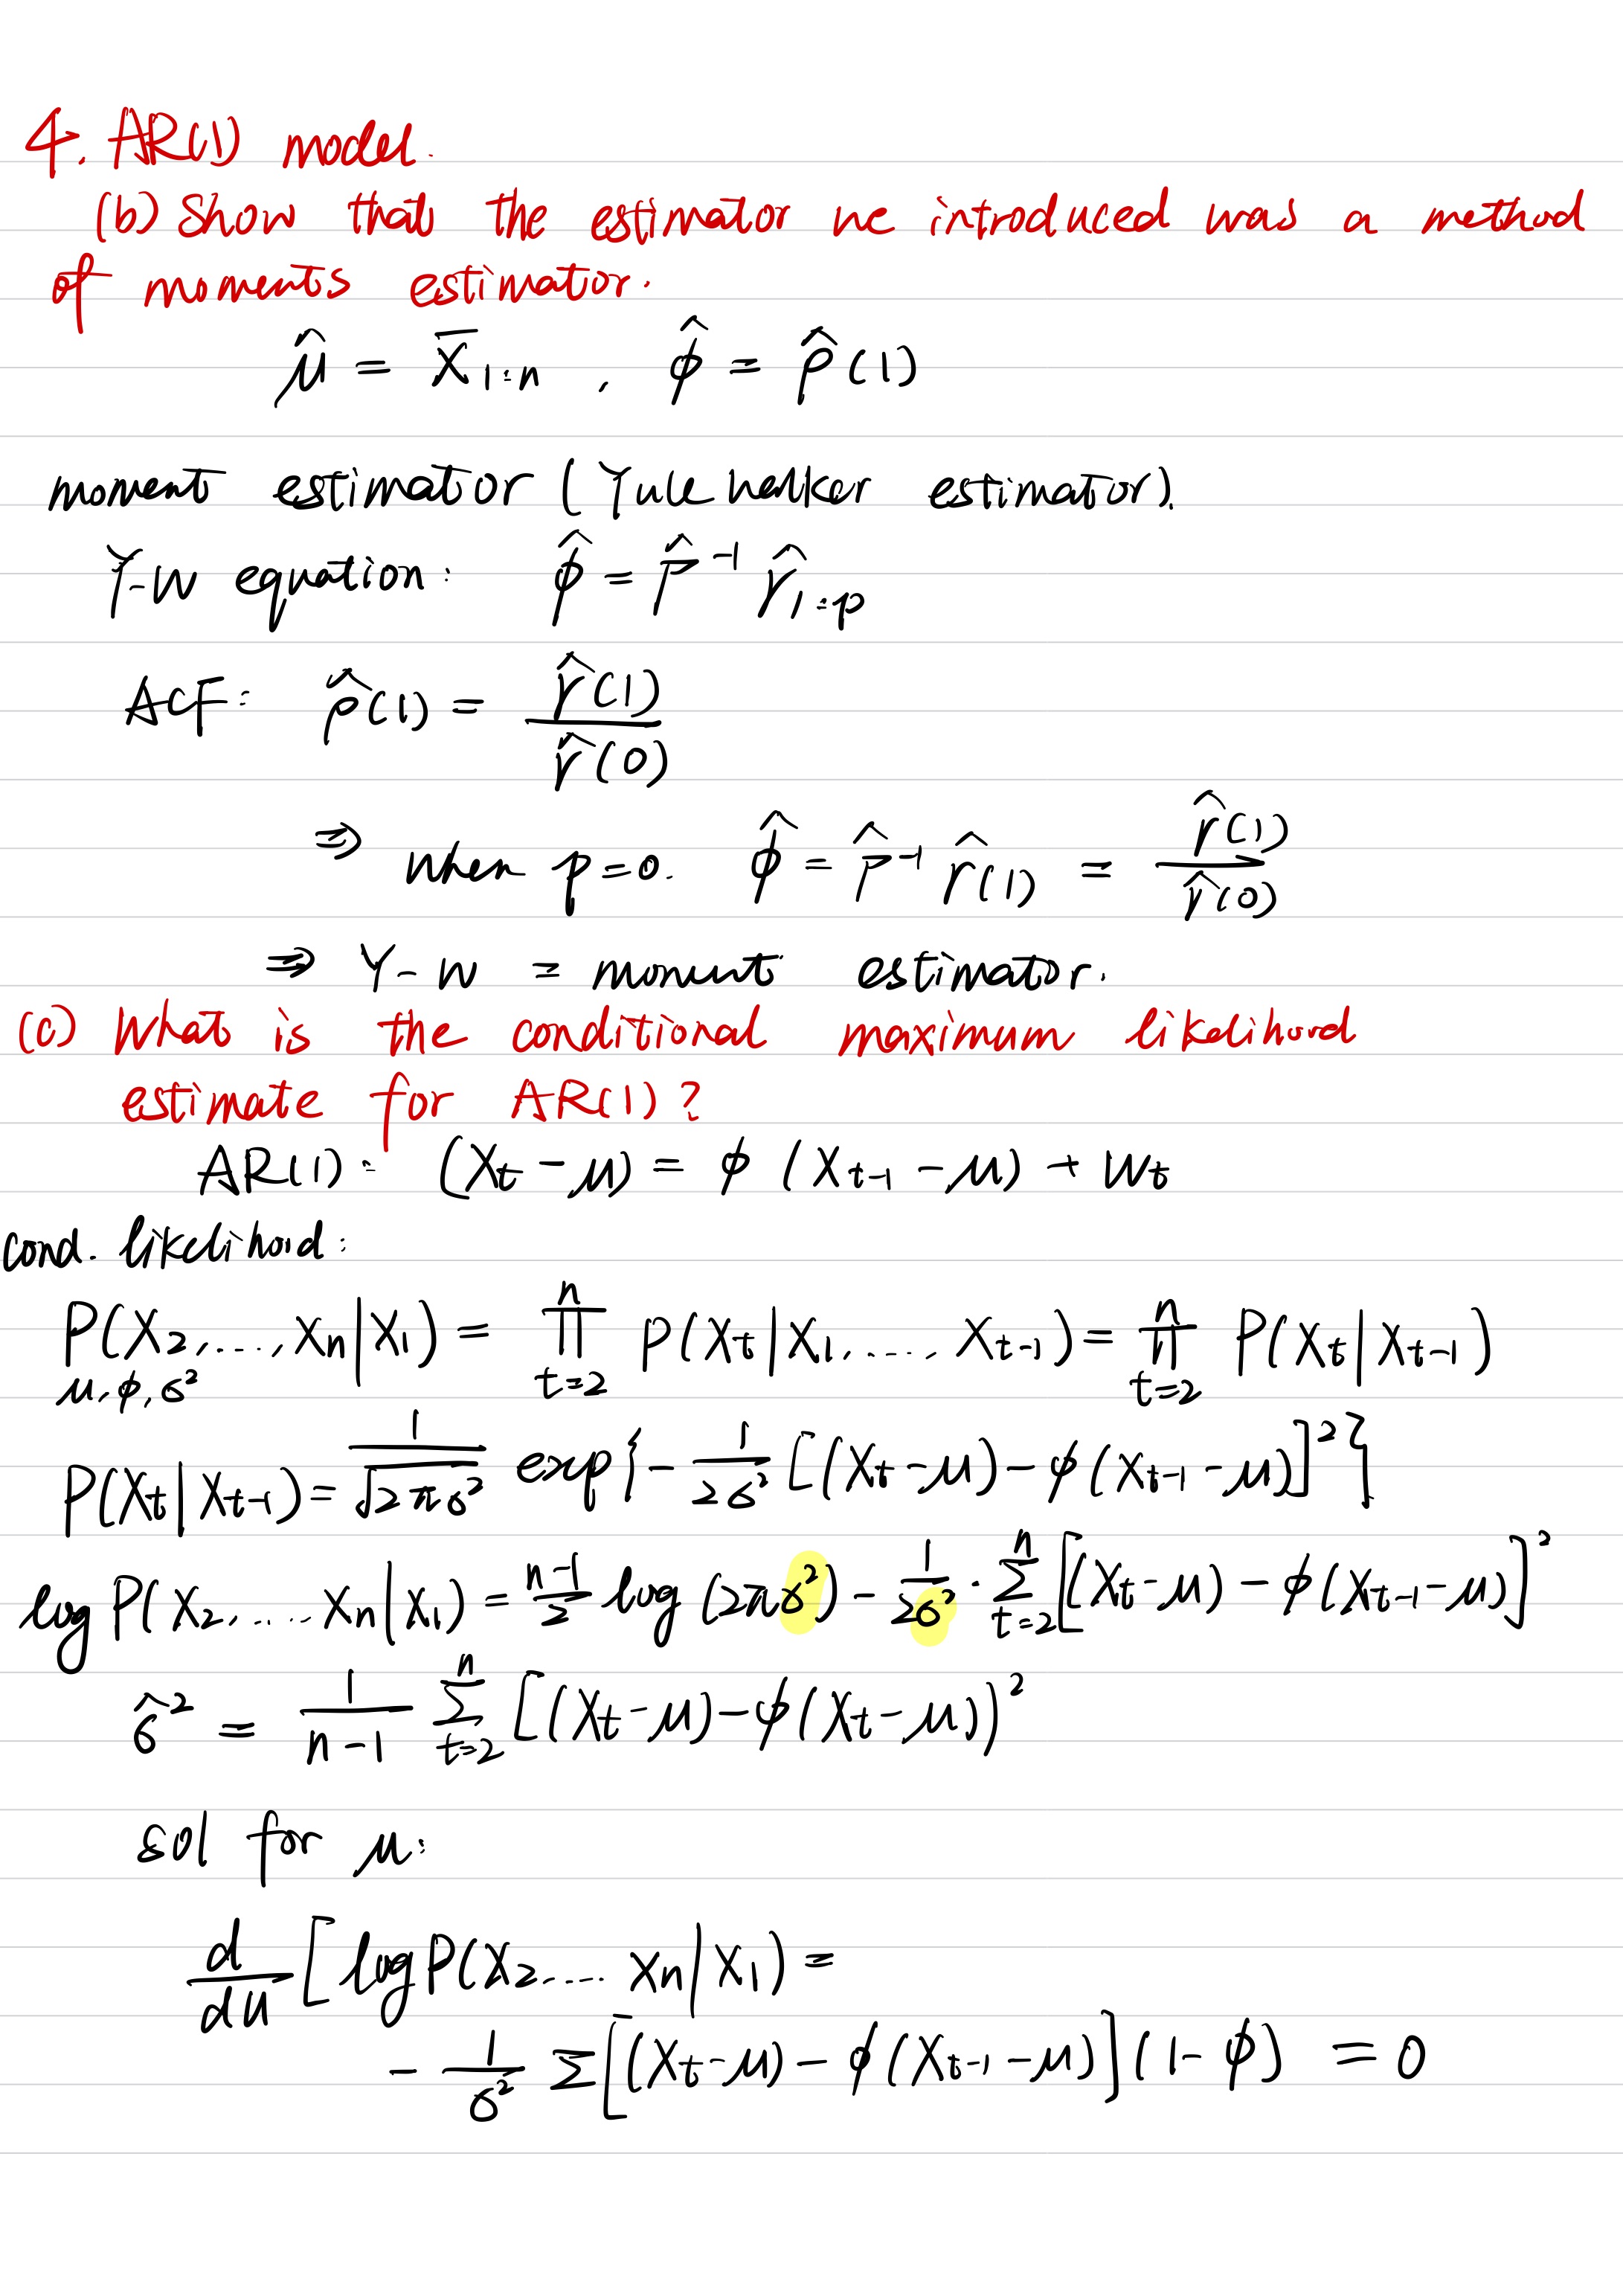 4. AR(1) model.
(b) Show that the estimator we introduced was a method
of moments estimator.
μ̂ = X̄₁:ₙ , φ̂ = ρ̂(1)
moment estimator (Yule walker estimator).
Y-W equation: φ̂ = Γ̂⁻¹ r̂₁:ₚ
ACF: ρ̂(1) = r̂(1) / r̂(0)
⇒ when p=0. φ̂ = Γ̂⁻¹ r̂(1) = r̂(1) / r̂(0)
⇒ Y-W = moment estimator.
(c) What is the conditional maximum likelihood
estimate for AR(1)?
AR(1): (Xt - μ) = φ (Xt-1 - μ) + Wt
cond. likelihood:
P(X2,....,Xn|X1) = ∏ P(Xt|X1,..... Xt-1) = ∏ P(Xt|Xt-1)
μ,φ,σ² t=2 n t=2 n
P(Xt|Xt-1) = 1/√2πσ² exp{-1/2σ² [(Xt-μ)-φ(Xt-1-μ)]²}
log P(X2,..... Xn|X1) = n-1/2 log(2πσ²) - 1/2σ² · Σ t=2 n [(Xt-μ) - φ(Xt-1-μ)]²
σ̂² = 1/n-1 Σ t=2 n [(Xt-μ)-φ(Xt-μ))²
sol for μ:
d/du [log P(X2..... Xn|X1) =
- 1/σ² Σ[(Xt-μ) - φ(Xt-1-μ)](1-φ) = 0